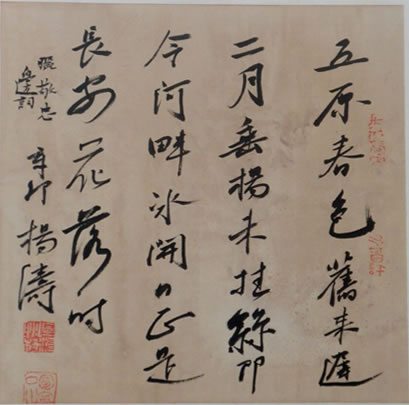 五原春色舊来遲
二月垂楊未挂絲即
今河畔冰開日正是
長安花落时
張敬忠
邊詞
辛卯楊濤